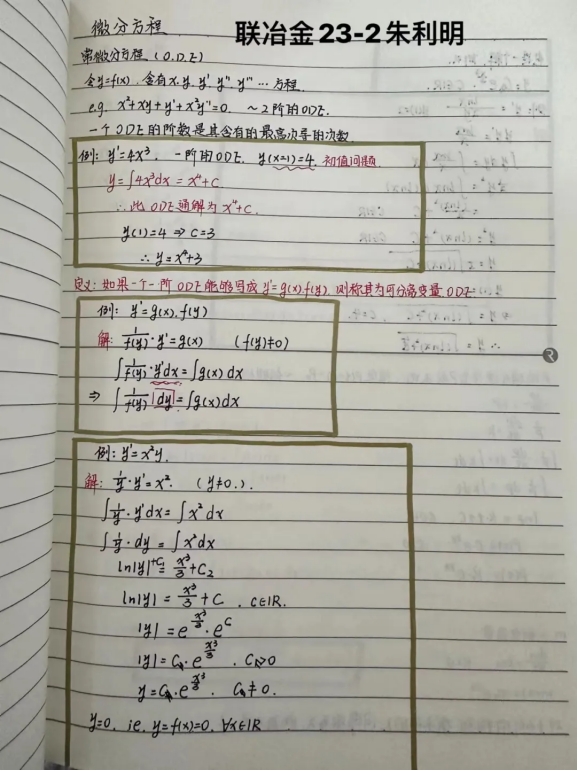 微分方程
联冶金23-2朱利明
常微分方程 (O.D.E)
令y=f(x), 含有x, y, y', y'', y''' … 方程.
e.g. x²+xy+y'+x²y''=0. ~2阶的ODE.
一个ODE的阶数是其含有的最高次导的次数.
例: y'=4x³. 一阶的ODE. y(x=1)=4. 初值问题
y=∫4x³dx = x⁴+C.
∴此ODE通解为 x⁴+C.
y(1)=4 ⇒ C=3
∴ y=x⁴+3
定义: 如果一个一阶ODE能够写成 y'=g(x)·f(y), 则称其为可分离变量ODE
例: y'=g(x)·f(y)
解: 1/f(y)·y'=g(x) (f(y)≠0)
∫1/f(y)·y'dx=∫g(x)dx
⇒ ∫1/f(y)|dy|=∫g(x)dx
例: y'=x²y.
解: 1/y·y'=x². (y≠0.).
∫1/y·y'dx=∫x²dx
∫1/y·dy=∫x²dx
ln|y|+C₁=x³/3+C₂
ln|y|=x³/3+C. C∈IR.
|y|=e^(x³/3)·e^C
|y|=C₁·e^(x³/3). C₁>0
y=C₁·e^(x³/3). C₁≠0.
y=0. ie. y=f(x)=0. ∀x∈IR